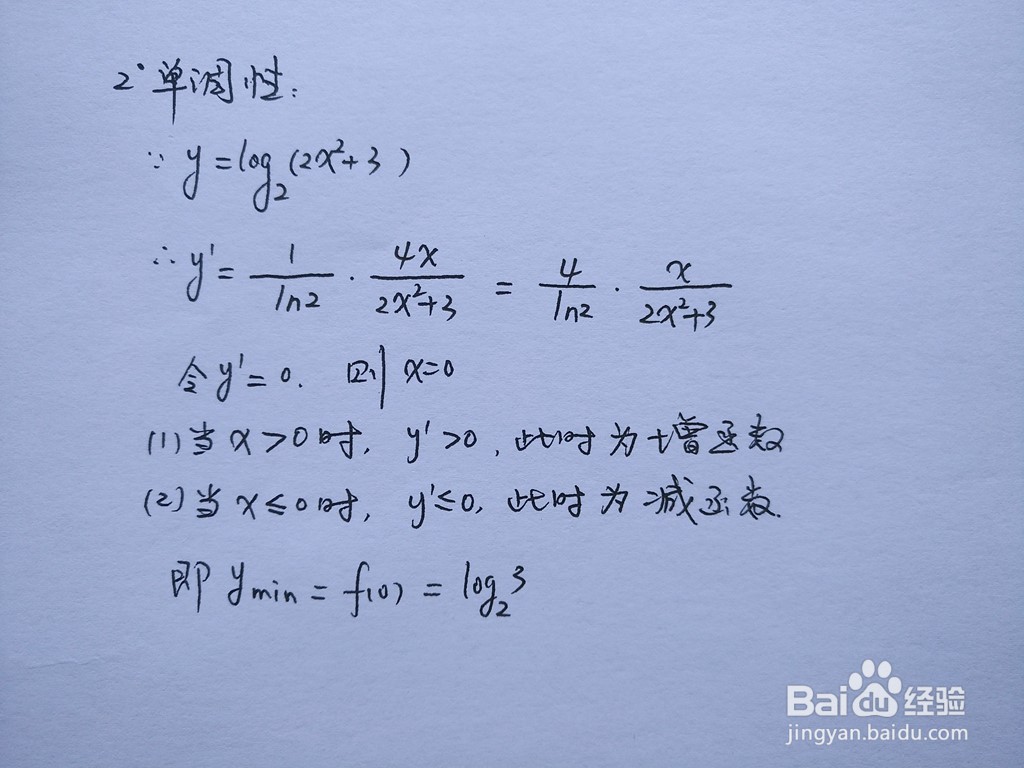 2° 单调性:
∵ y = log₂(2x²+3)
∴ y' = 1/ln2 · 4x/(2x²+3) = 4/ln2 · x/(2x²+3)
令 y' = 0. 则 x=0
(1) 当 x > 0 时, y' > 0, 此时为增函数
(2) 当 x ≤ 0 时, y' ≤ 0, 此时为减函数.
即 ymin = f(0) = log₂3
Baidu 经验
jingyan.baidu.com